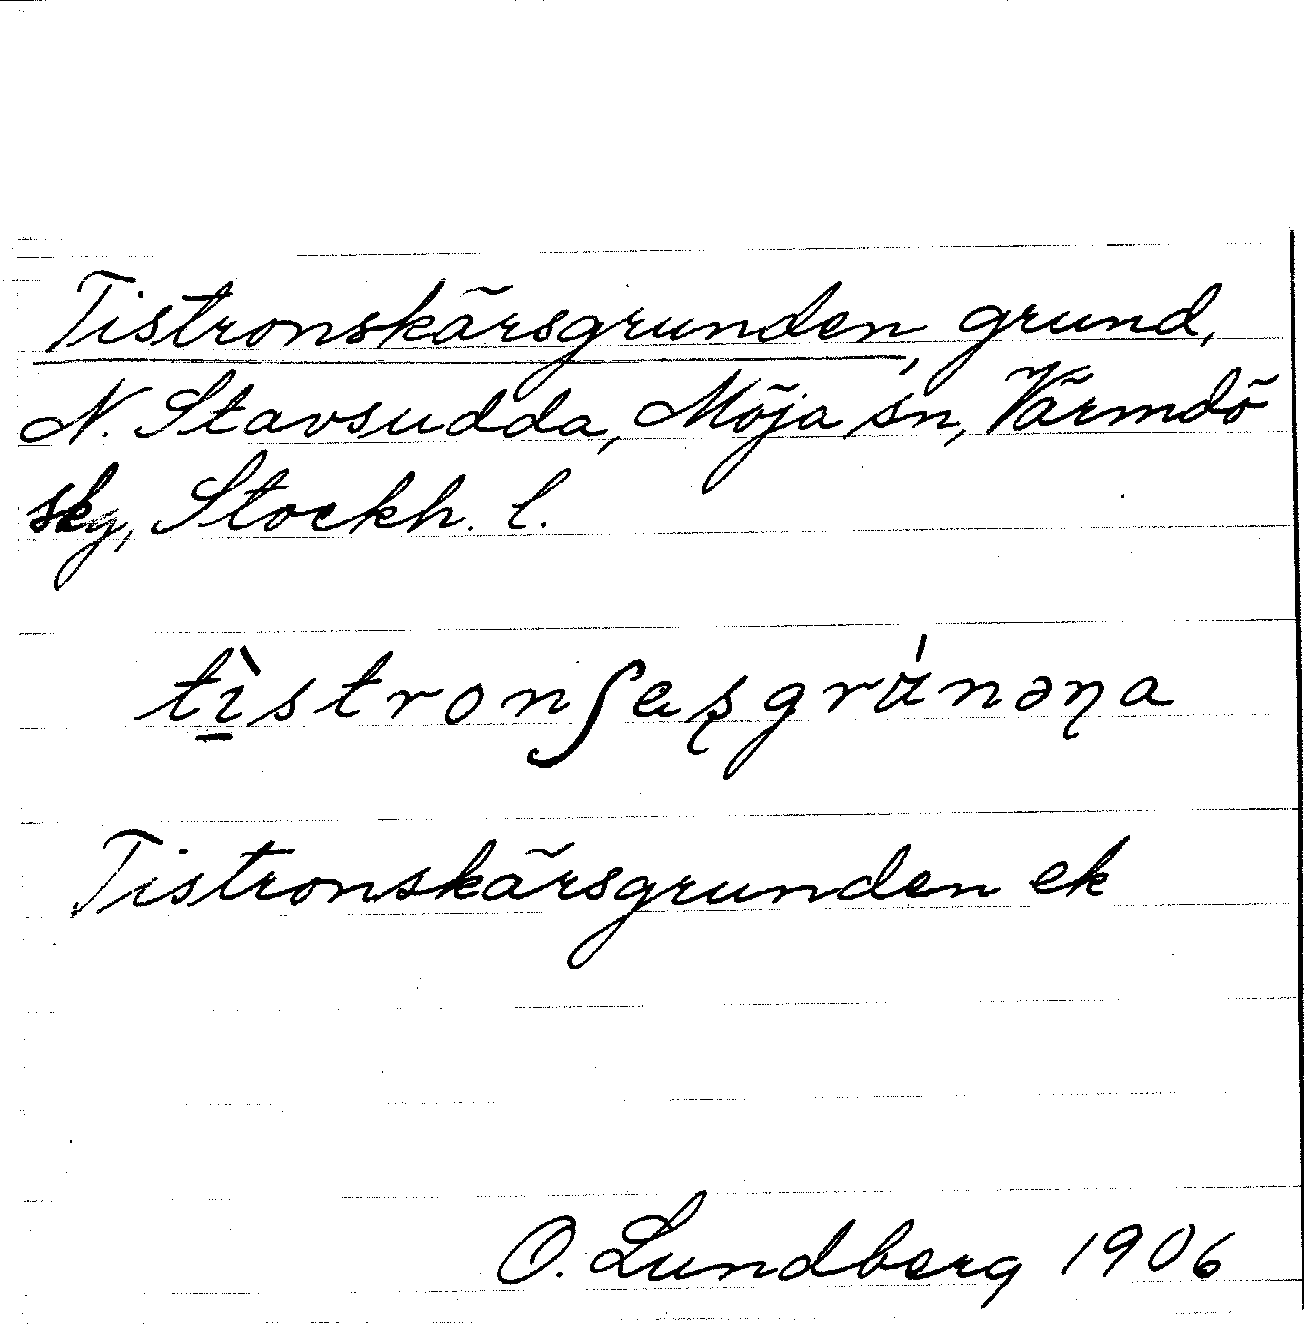 Tistronskärsgrunden, grund,
N. Stavsudda, Möja sn, Värmdö
skg, Stockh. l.
tìstronʃæʂgrʉ́nəɳa
Tistronskärsgrunden ek
O. Lundberg 1906